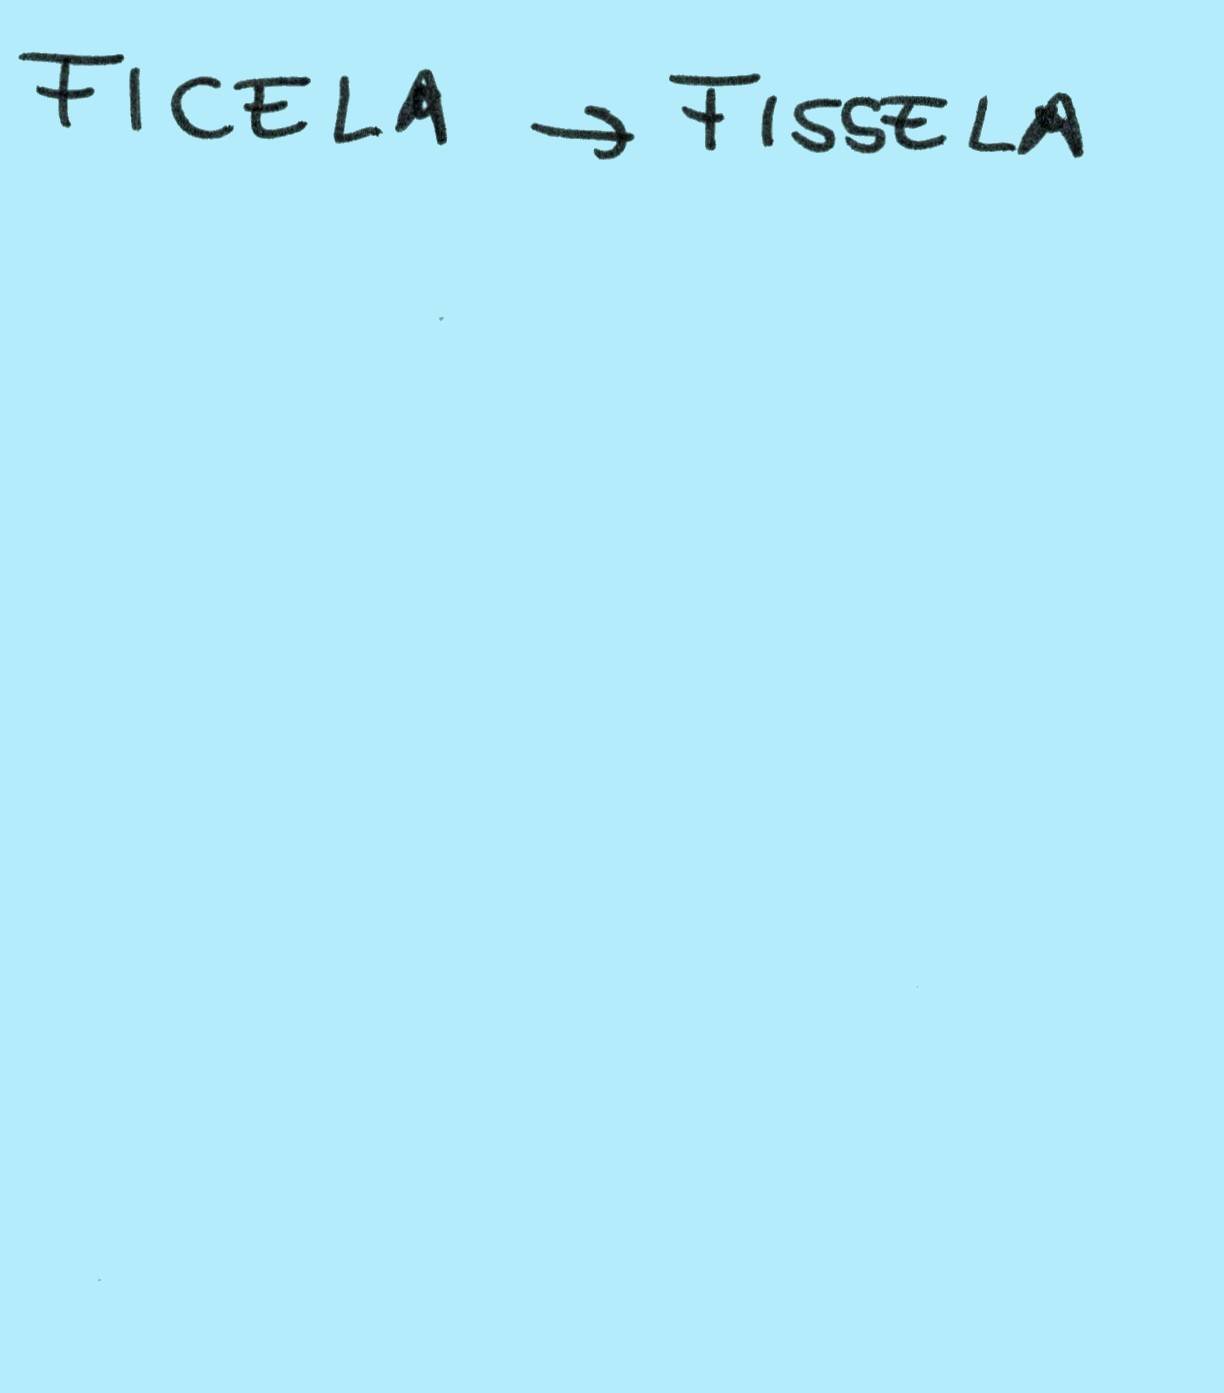 FICELA → FISSELA